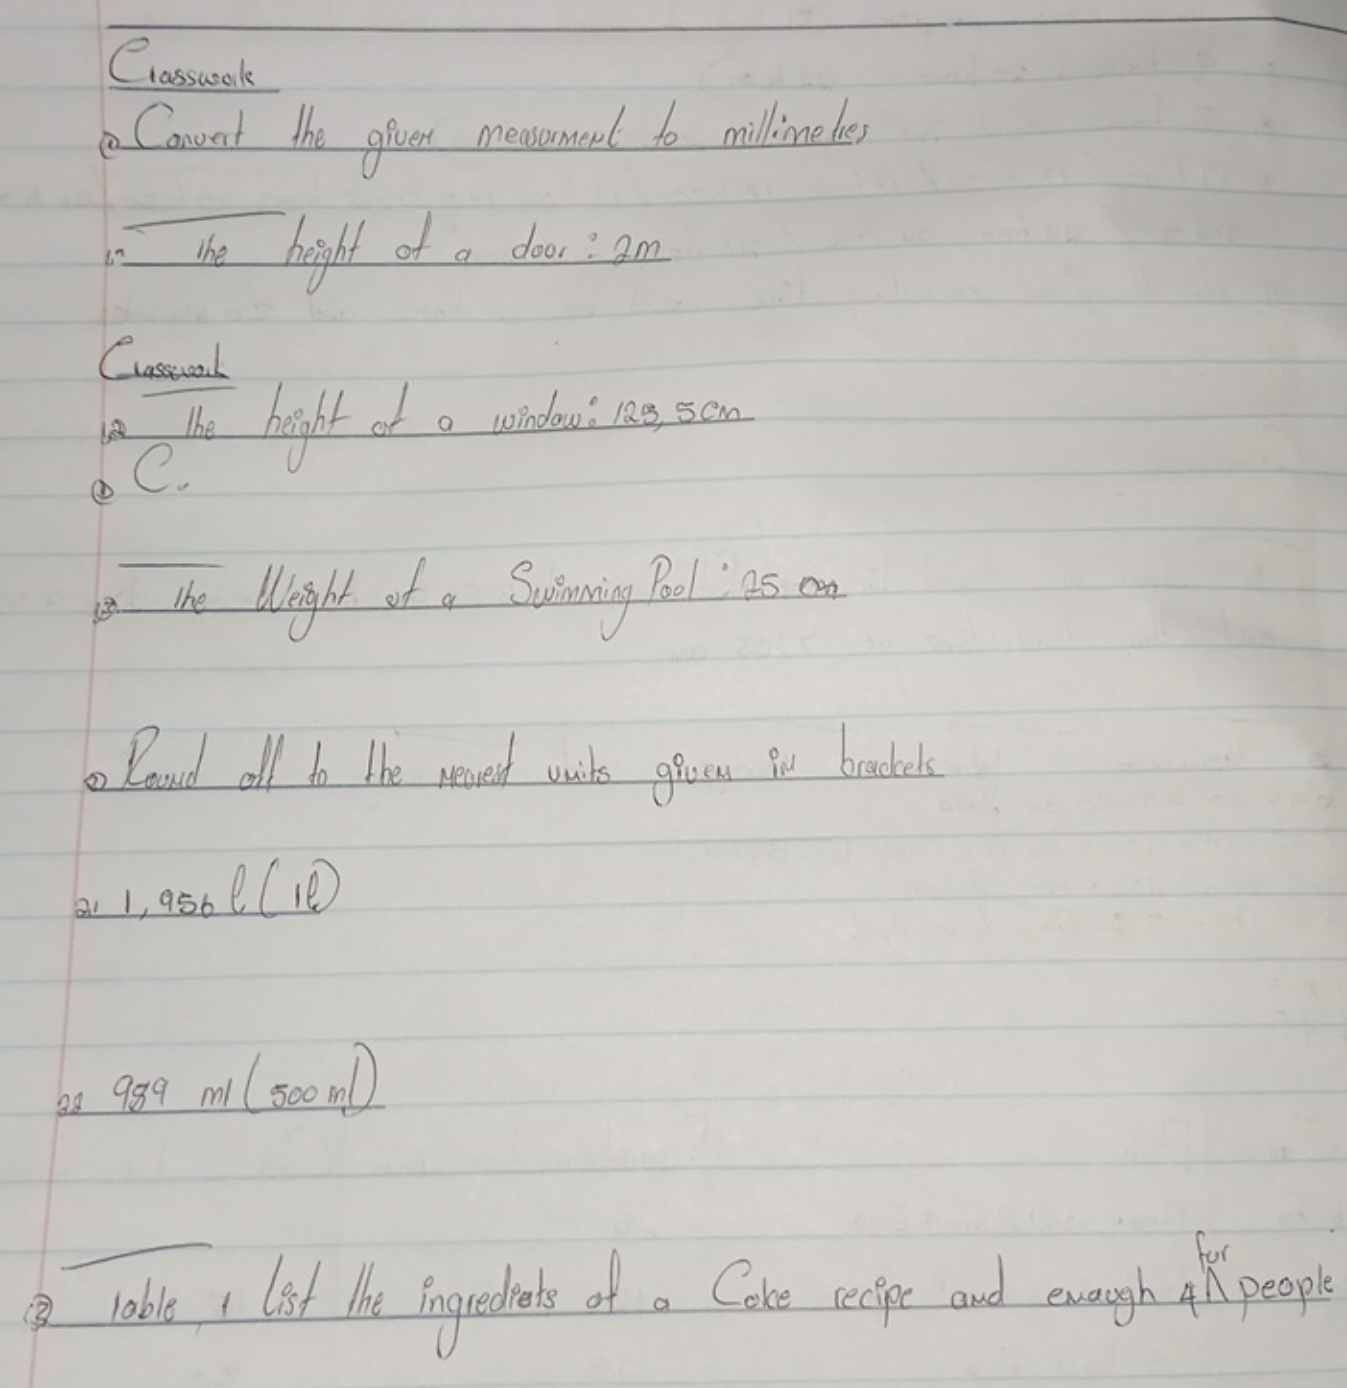 Classwork
① Convert the given measurment to millimetres
1.1 The height of a door: 2m
Classwork
1.2 The height of a window: 123,5cm
① C.
1.3 The Weight of a Swimming Pool: 25 cm
② Round off to the nearest units given in brackets
2.1 1,956 l (1l)
2.2 989 ml (500 ml)
③ Table 1 list the ingredients of a Coke recipe and enough 4 for people